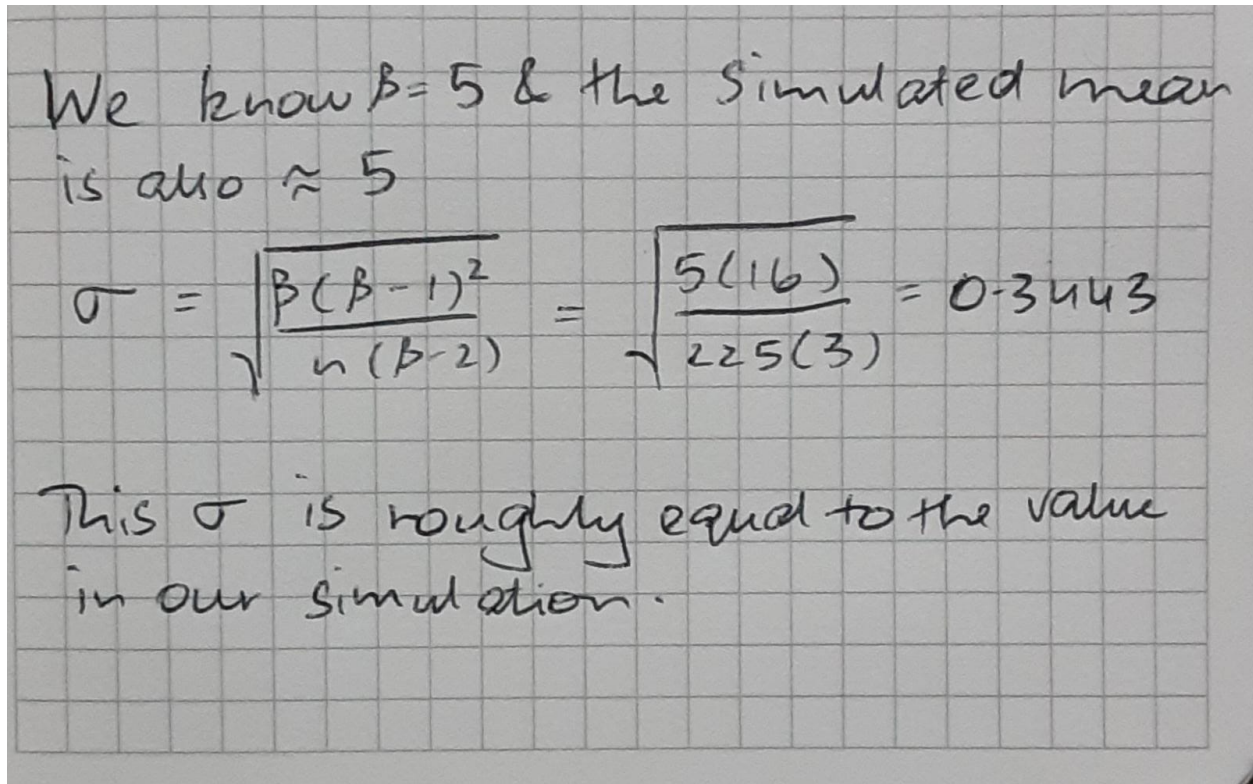 We know β = 5 & the simulated mean
is also ≈ 5
σ = √(β(β-1)²/n(β-2)) = √(5(16)/225(3)) = 0.3443
This σ is roughly equal to the value
in our simulation.